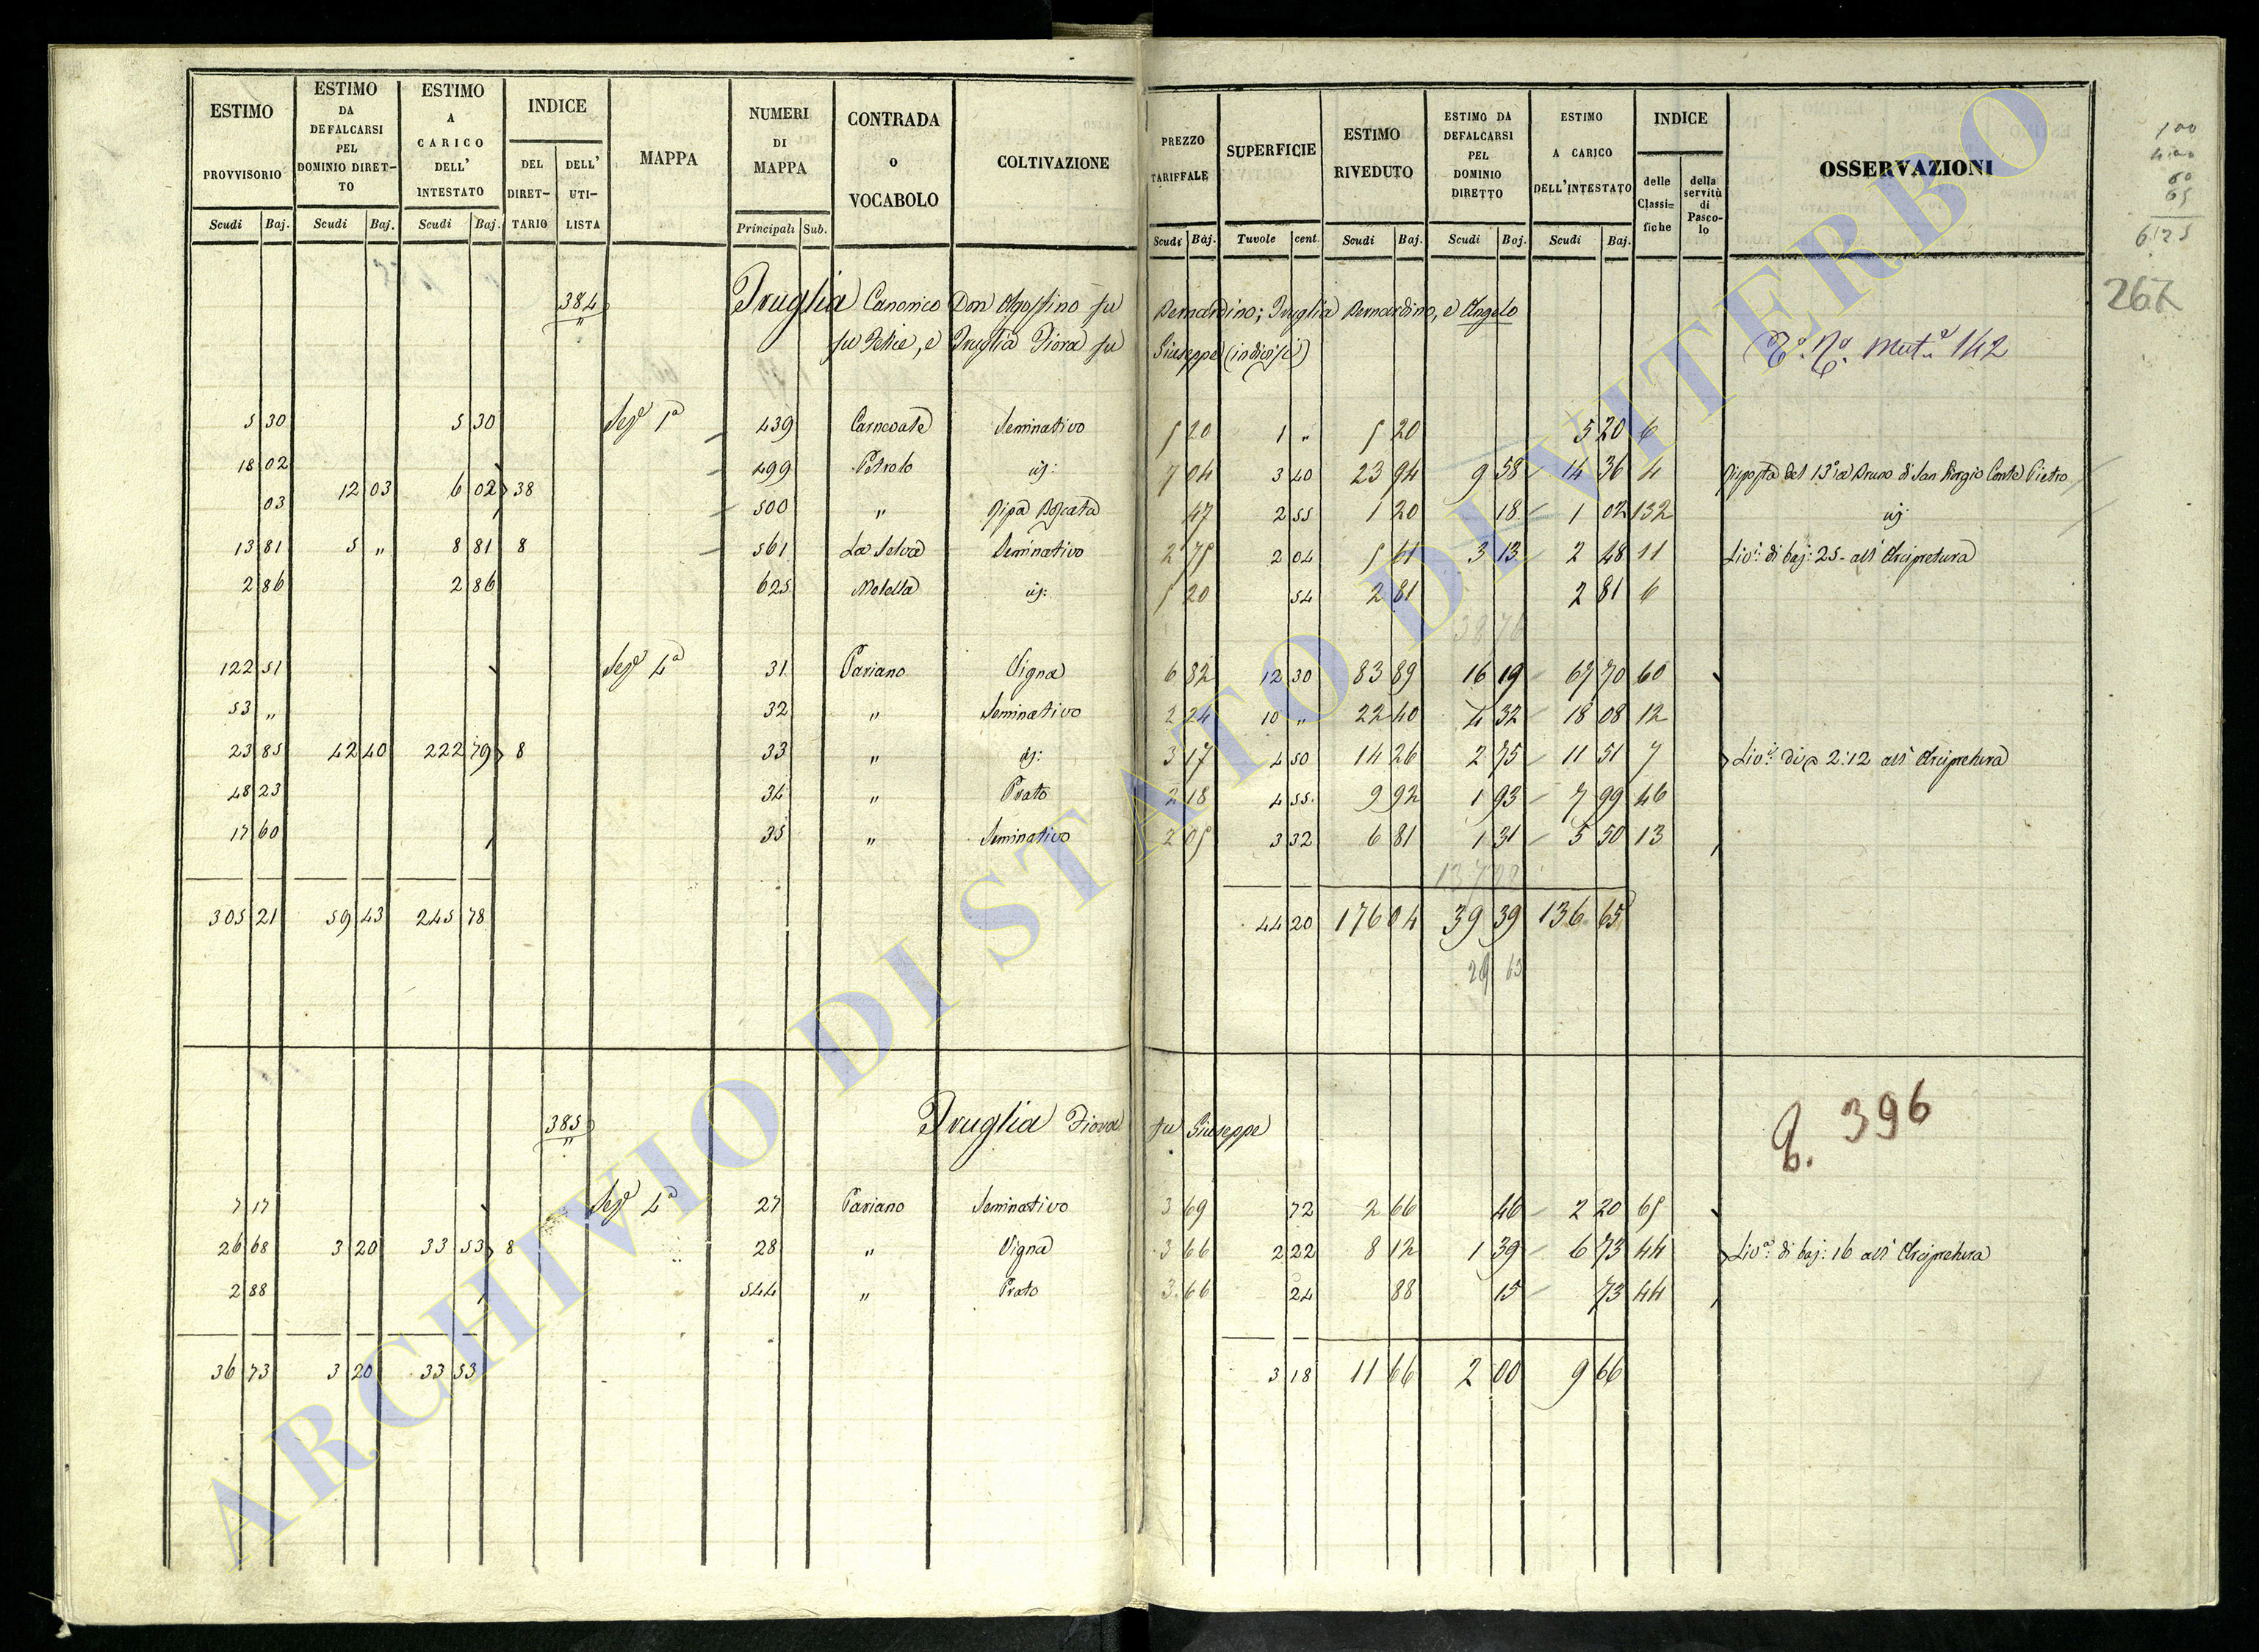 ESTIMO PROVVISORIO Scudi Baj.
ESTIMO DA DEFALCARSI PEL DOMINIO DIRETTO Scudi Baj.
ESTIMO A CARICO DELL' INTESTATO Scudi Baj.
INDICE DEL DIRETTARIO DELL' UTILISTA
MAPPA
NUMERI DI MAPPA Principali Sub.
CONTRADA O VOCABOLO
COLTIVAZIONE
PREZZO TARIFFALE Scudi Baj.
SUPERFICIE Tavole cent.
ESTIMO RIVEDUTO Scudi Baj.
ESTIMO DA DEFALCARSI PEL DOMINIO DIRETTO Scudi Baj.
ESTIMO A CARICO DELL'INTESTATO Scudi Baj.
INDICE delle Classifiche della servitù di Pascolo
OSSERVAZIONI
100
60
65
625
267
384 Truglia Canonico Don Agostino fu Bernardino; Truglia Bernardino, e Angelo
fu Felice, e Truglia Fiora fu Giuseppe (indivisi) Mut.a 142
5 30 5 30 Sez.e 1a 439 Carnevate Seminativo 5 20 1 " 5 20 5 20 6
18 02 499 Petrolo id: 7 04 3 40 23 94 9 58 14 36 4 Risposta del 13.o a Bruno di San Giorgio Conte Pietro
12 03 6 02 38
03 500 " Ripa Boscata 47 2 55 1 20 18 1 02 132 id:
13 81 5 " 8 81 8 561 La Selva Seminativo 2 75 2 04 5 61 3 13 2 48 11 Liv.o di baj: 25 all' Arcipretura
2 86 2 86 625 Molella id: 5 20 54 2 81 2 81 6
38 76
122 51 Sez.e 4a 31 Pariano Vigna 6 82 12 30 83 89 16 19 67 70 60
53 " 32 " Seminativo 2 24 10 " 22 40 4 32 18 08 12
23 85 42 40 222 79 8 33 " id: 3 17 4 50 14 26 2 75 11 51 7 Liv.o di 2:12 all' Arcipretura
48 23 34 " Prato 2 18 4 55 9 92 1 93 7 99 46
17 60 35 " Seminativo 2 05 3 32 6 81 1 31 5 50 13
305 21 59 43 245 78 44 20 176 04 39 39 136 65
385 Truglia Fiora fu Giuseppe
q. 396
7 17 Sez.e 4a 27 Pariano Seminativo 3 69 72 2 66 46 2 20 65
26 68 3 20 33 53 8 28 " Vigna 3 66 2 22 8 12 1 39 6 73 44 Liv.o di baj: 16 all' Arcipretura
2 88 544 " Prato 3 66 24 88 15 73 44
36 73 3 20 33 53 3 18 11 66 2 00 9 66
ARCHIVIO DI STATO DI VITERBO